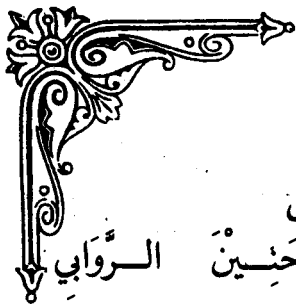 حَنِـينْ الـرَّوَابِي